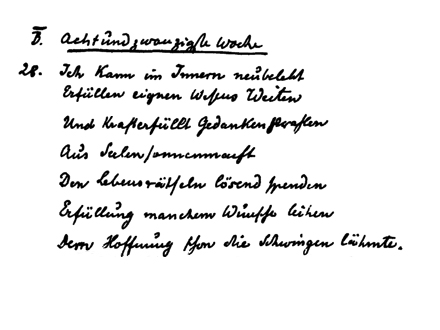 B. Achtundzwanzigste Woche
28. Ich kann im Innern neubelebt
Erfüllen eignen Wesens Weiten
Und krafterfüllt Gedankenstrahlen
Aus Seelensonnenmacht
Den Lebensrätseln lösend spenden
Erfüllung manchem Wunsche leihen
Dem Hoffnung schon die Schwingen lähmte.